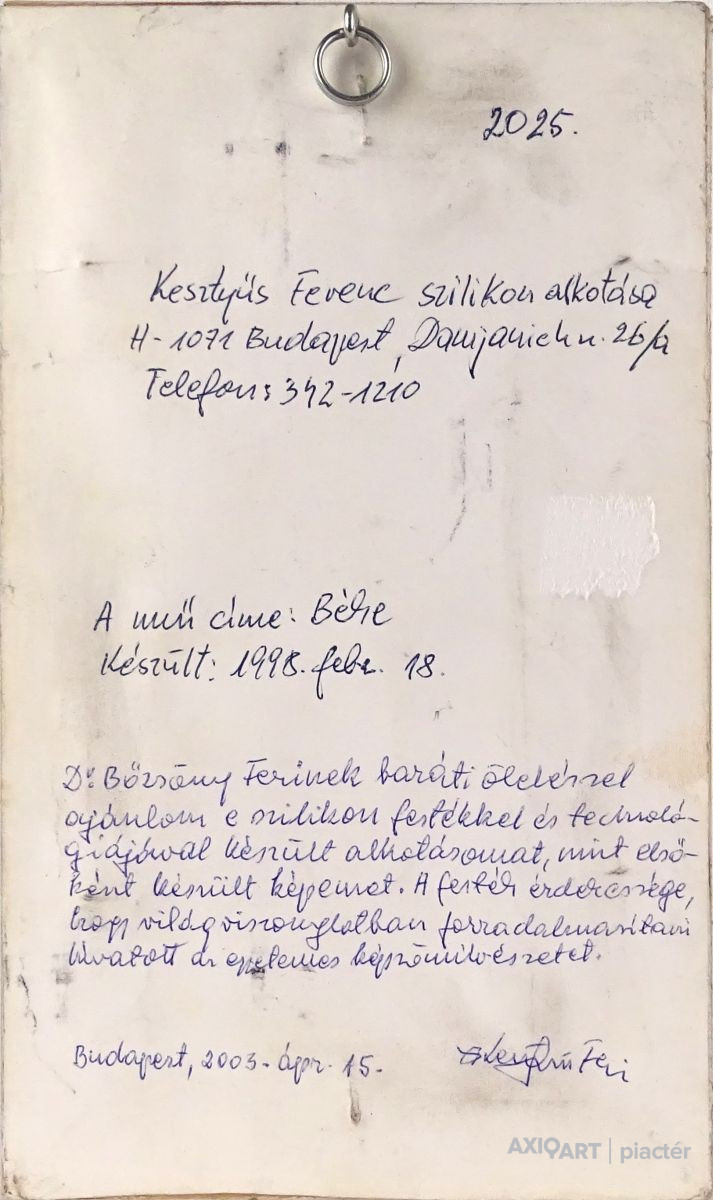 2025.
Kesztyűs Ferenc szilikon alkotása
H-1071 Budapest, Damjanich u. 26/a
Telefon: 342-1210
A mű címe: Béke
Készült: 1998. febr. 18.
Dr. Bőzsöny Ferinek baráti öleléssel
ajánlom e szilikon festékkel és technoló-
giájával készült alkotásomat, mint első-
ként készült képemet. A festék érdekessége,
hogy világviszonylatban forradalmasítani
hivatott az egyetemes képzőművészetet.
Budapest, 2003. ápr. 15.
Feri
AXIOART | piactér